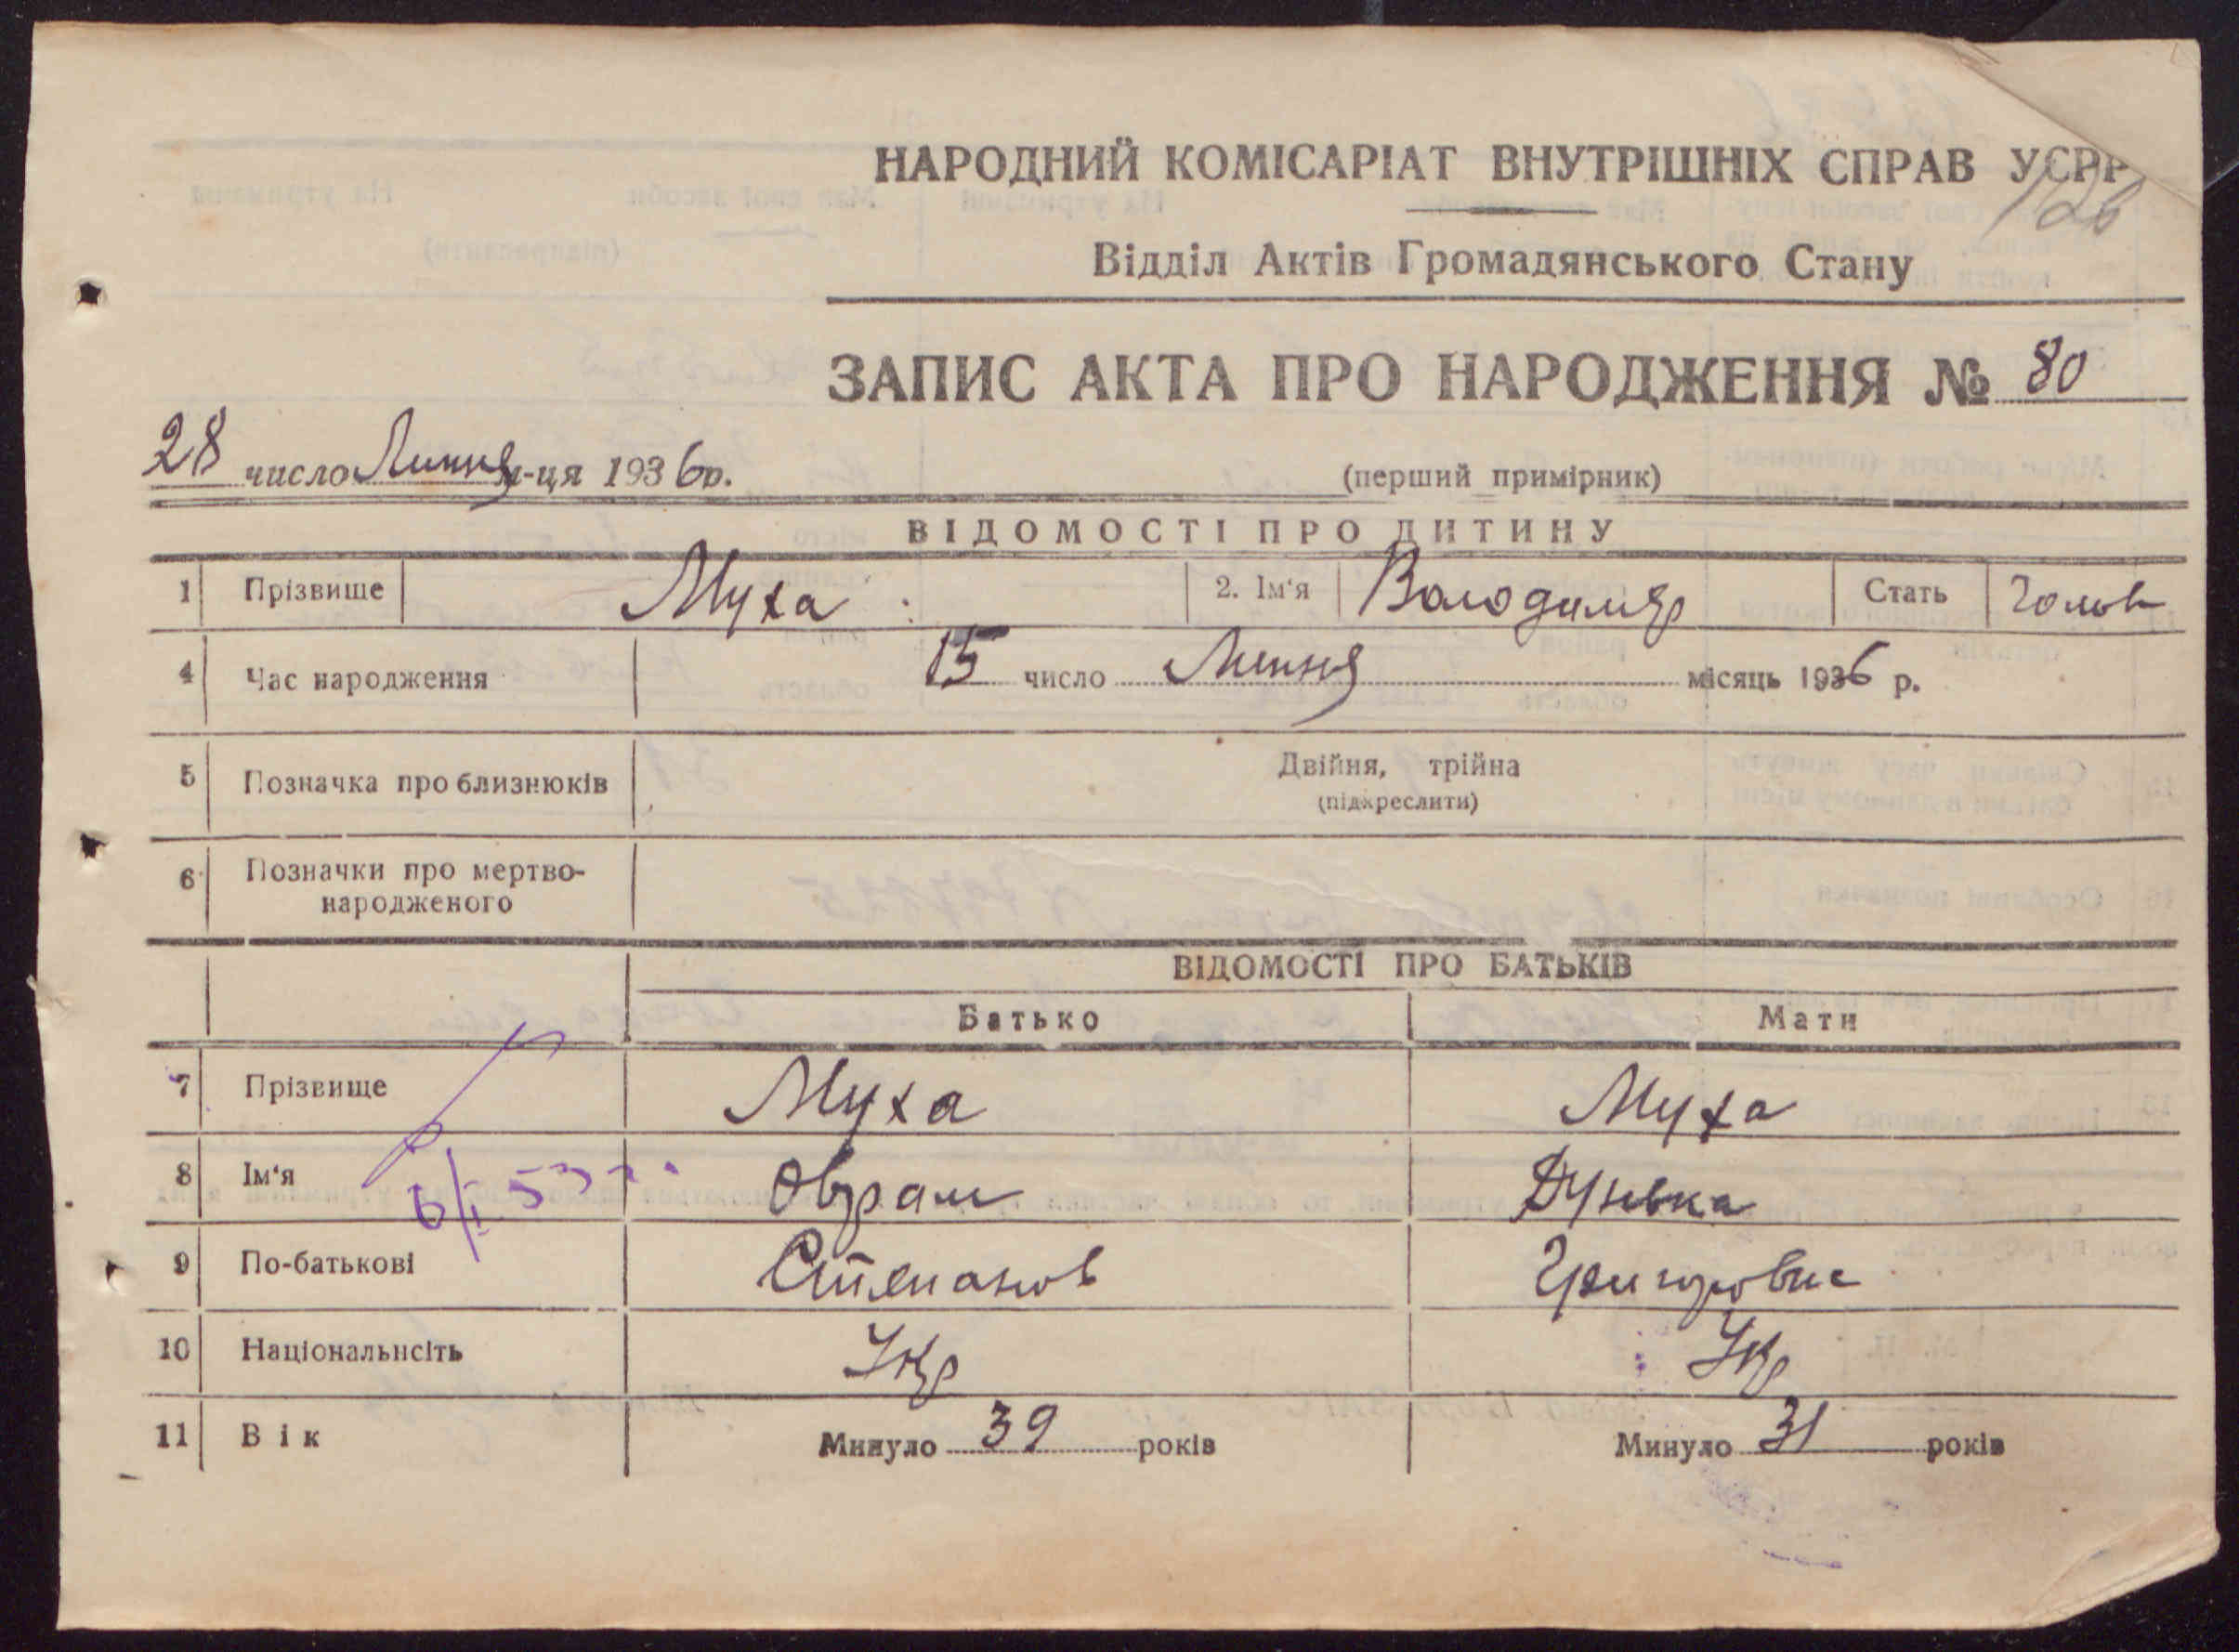 НАРОДНИЙ КОМІСАРІАТ ВНУТРІШНІХ СПРАВ УСРР
126
Відділ Актів Громадянського Стану
ЗАПИС АКТА ПРО НАРОДЖЕННЯ № 80
28 число Липня м-ця 1936 р.
(перший примірник)
ВІДОМОСТІ ПРО ДИТИНУ
1 Прізвище Муха 2. Ім'я Володимир Стать Голов
4 Час народження 15 число Липня місяць 1936 р.
5 Позначка про близнюків Двійня, трійна
(підкреслити)
6 Позначки про мертво-
народженого
ВІДОМОСТІ ПРО БАТЬКІВ
Батько Мати
7 Прізвище Муха Муха
8 Ім'я Оврам Дунька
6/I 53 г.
9 По-батькові Степанов Григоровна
10 Національнсіть Укр Укр
11 Вік Минуло 39 років Минуло 31 років